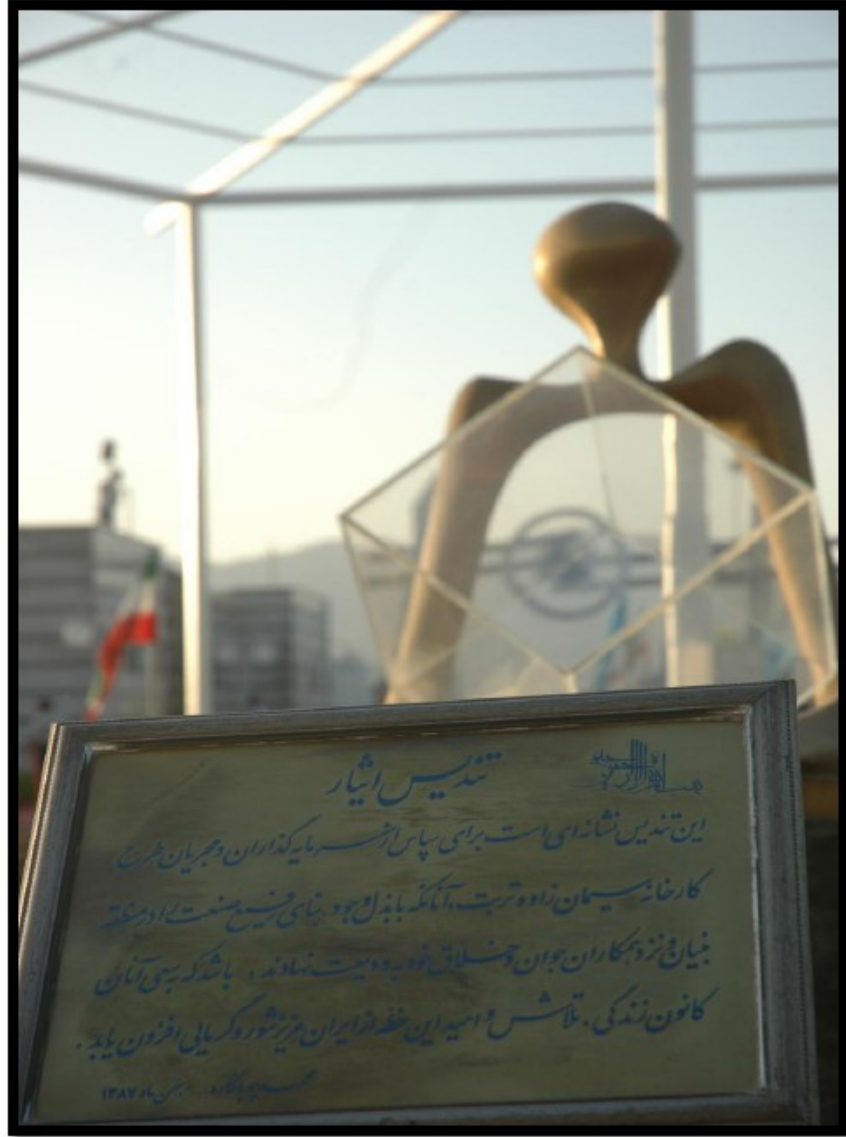 بسم الله الرحمن الرحیم
تندیس ایثار
این تندیس نشانه‌ای است برای سپاس از سرمایه‌گذاران و مجریان طرح
کارخانه سیمان زاوه تربت، آنانکه با بذل وجود، بنای رفیع صنعت را در منطقه
بنیان و نزد همکاران جوان و خلاق خود به ودیعت نهادند، باشد که به سعی آنان
کانون زندگی، تلاش و امید این خطه از ایران عزیز شور و گرمایی افزون یابد.
بهمن ماه ۱۳۸۷